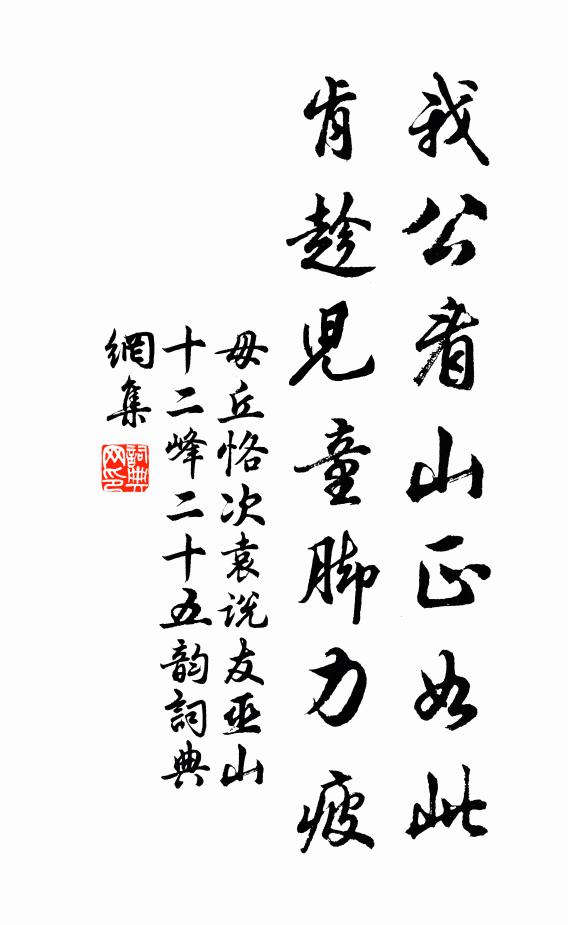 我公看山正如此
肯趁児童脚力疲
毋丘恪次袁说友巫山
十二峰二十五韵詞典
網集
詞典
网印